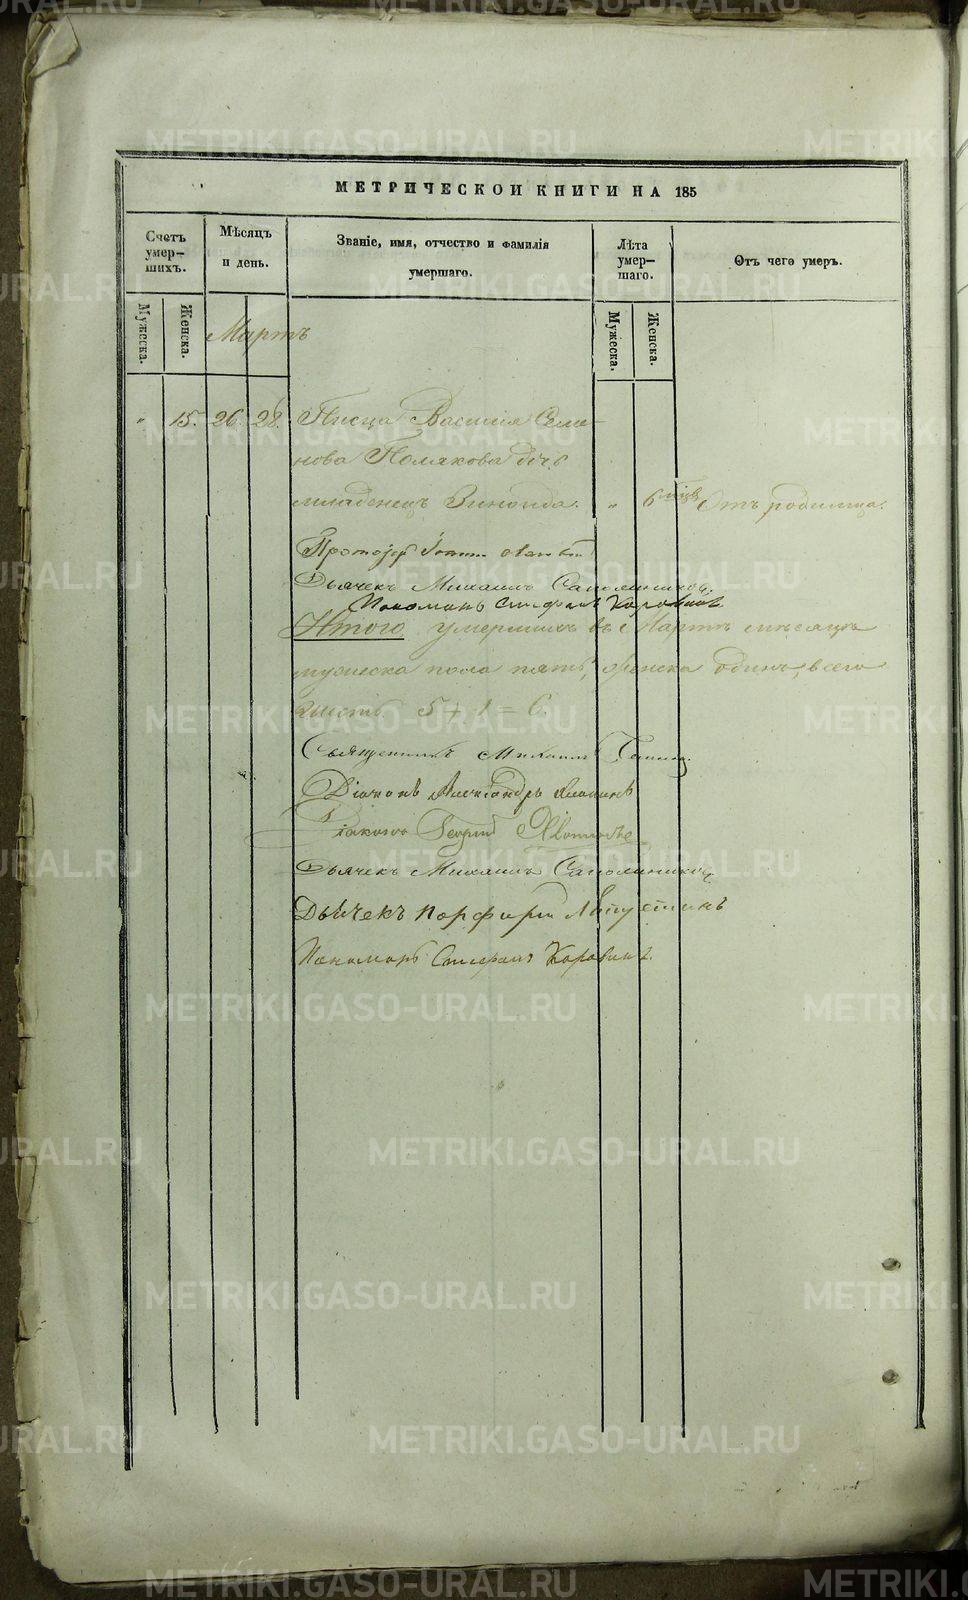 МЕТРИЧЕСКОИ КНИГИ НА 185
Счетъ умер-шихъ.
Мѣсяцъ и день.
Званіе, имя, отчество и фамилія умершаго.
Лѣта умер-шаго.
Отъ чего умеръ.
Мужеска.
Женска.
Мартъ
Мужеска.
Женска.
" 15. 26. 28. Писца Василія Семе-
нова Полякова дочь
младенецъ Зинаида. " 6 мѣсяц. Отъ родимца.
Протоіерей Іоаннъ
Дьячекъ Михаилъ Сапожниковъ.
Пономарь Стефанъ Коровинъ
Итого умершихъ въ Мартѣ мѣсяцѣ
мужеска пола пять, женска одинъ, всего
шесть. 5 + 1 = 6.
Священникъ Михаилъ
Діаконъ Александръ
Діаконъ Георгій
Дьячекъ Михаилъ Сапожниковъ
Дьячекъ Порфирій Лапустинъ
Пономарь Стефанъ Коровинъ.
METRIKI.GASO-URAL.RU